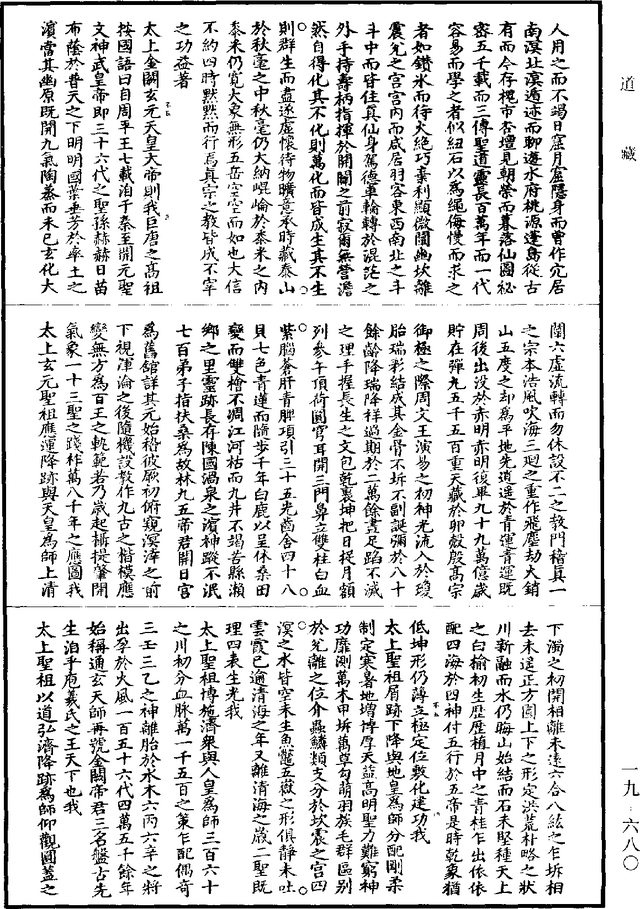 道藏
人用之而不竭日居月屈隱身而曾作定居
南溟北溟遁迹而聊遊水府桃源蓬島從古
有而今存槐市杏壇見朝榮而暮落仙圖祕
密五千載而三傳聖道靈長百萬年而一代
容易而學之者似紐石以為繩侮慢而求之
者如鑽氷而待火絕巧棄利顯微闡幽坎離
震兌之宮宮內而咸居羽客東西南北之斗
斗中而皆住真仙身駕德車輪轉於混茫之
外手持壽柄指揮於開闢之前寂爾無營澹
然自得化其不化則萬化而皆成生其不生
則群生而盡遂虛懷待物曠意承時藏泰山
於秋毫之中秋毫仍大納崐崘於黍米之內
黍米仍寬大象無形五岳空空而如也大信
不約四時默默而行焉真宗之教皆成不宰
之功益著
太上金闕玄元天皇大帝則我巨唐之高祖
按國語曰自周平王七載洎千秦至開元聖
文神武皇帝即三十六代之聖孫赫赫日苗
布蔭於普天之下明明國葉垂芳於率土之
濱當其幽原既開九氣陶蒸而未已玄化大
闡六虛流轉而勿休設不二之教門稽真一
之宗本浩風吹海三迴之重作飛塵劫火銷
山五度之却為平地先逍遙於青運青運既
周後出沒於赤明赤明復畢九十九萬億歲
貯在彈丸五千五百重天藏於卵殼殷高宗
御極之際周文王演易之初神光流入於瓊
胎瑞彩結成其金骨不坼不副誕彌於八十
餘齡降瑞降祥過期於二萬餘晝足蹈不滅
之理手握長生之文包乾裹坤把日捉月額
列參午頂荷圓穹耳開三門鼻立雙柱白血
紫腦蒼肝青脾項引三十五光齒含四十八
貝七色青蓮而隨步千年白鹿以呈休桑田
變而雙檜不凋江河枯而九井不竭苦縣瀨
鄉之里靈跡長存陳國渦泉之濱神蹤不泯
七百弟子指扶桑為故林九五帝君開日宮
為舊舘詳其元始稽彼厥初俯窺溟涬之前
下視渾淪之後隨機設教作九古之楷模應
變無方為百王之軌範若乃歲起攝提肇開
氣象一十三聖之踐祚萬八千年之應圖我
太上玄元聖祖應運降跡與天皇為師上清
下濁之初開相離未遠六合八紘之乍坼相
去未遑正方圓上下之形定洪荒朴略之狀
川新融而水仍晦山始結而石未堅種天上
之白榆初生歷歷植月中之青桂乍出依依
配四海於四神付五行於五帝是時乾象猶
低坤形仍薄立極定位敷化建功我
太上聖祖屑跡下降與地皇為師分配剛柔
制定寒暑地增博厚天益高明聖力難窮神
功靡測萬木甲坼萬草勾萌羽族毛群區别
於光離之位介蟲鱗類支分於坎震之宮四
溟之水皆空未生魚鼈五嶽之形俱靜未吐
雲霞已逾清海之年又離清海之歲二聖既
理四表生光我
太上聖祖博施濟衆與人皇為師三百六十
之川初分血脉萬一千五百之策乍配偶奇
三壬三乙之神離胎於水木六丙六辛之將
出孕於火風一百五十六代四萬五千餘年
始稱通玄天師再號金闕帝君三名盤古先
生洎乎庖羲氏之王天下也我
太上聖祖以道弘濟降跡為師仰觀圓蓋之
一九·六八〇